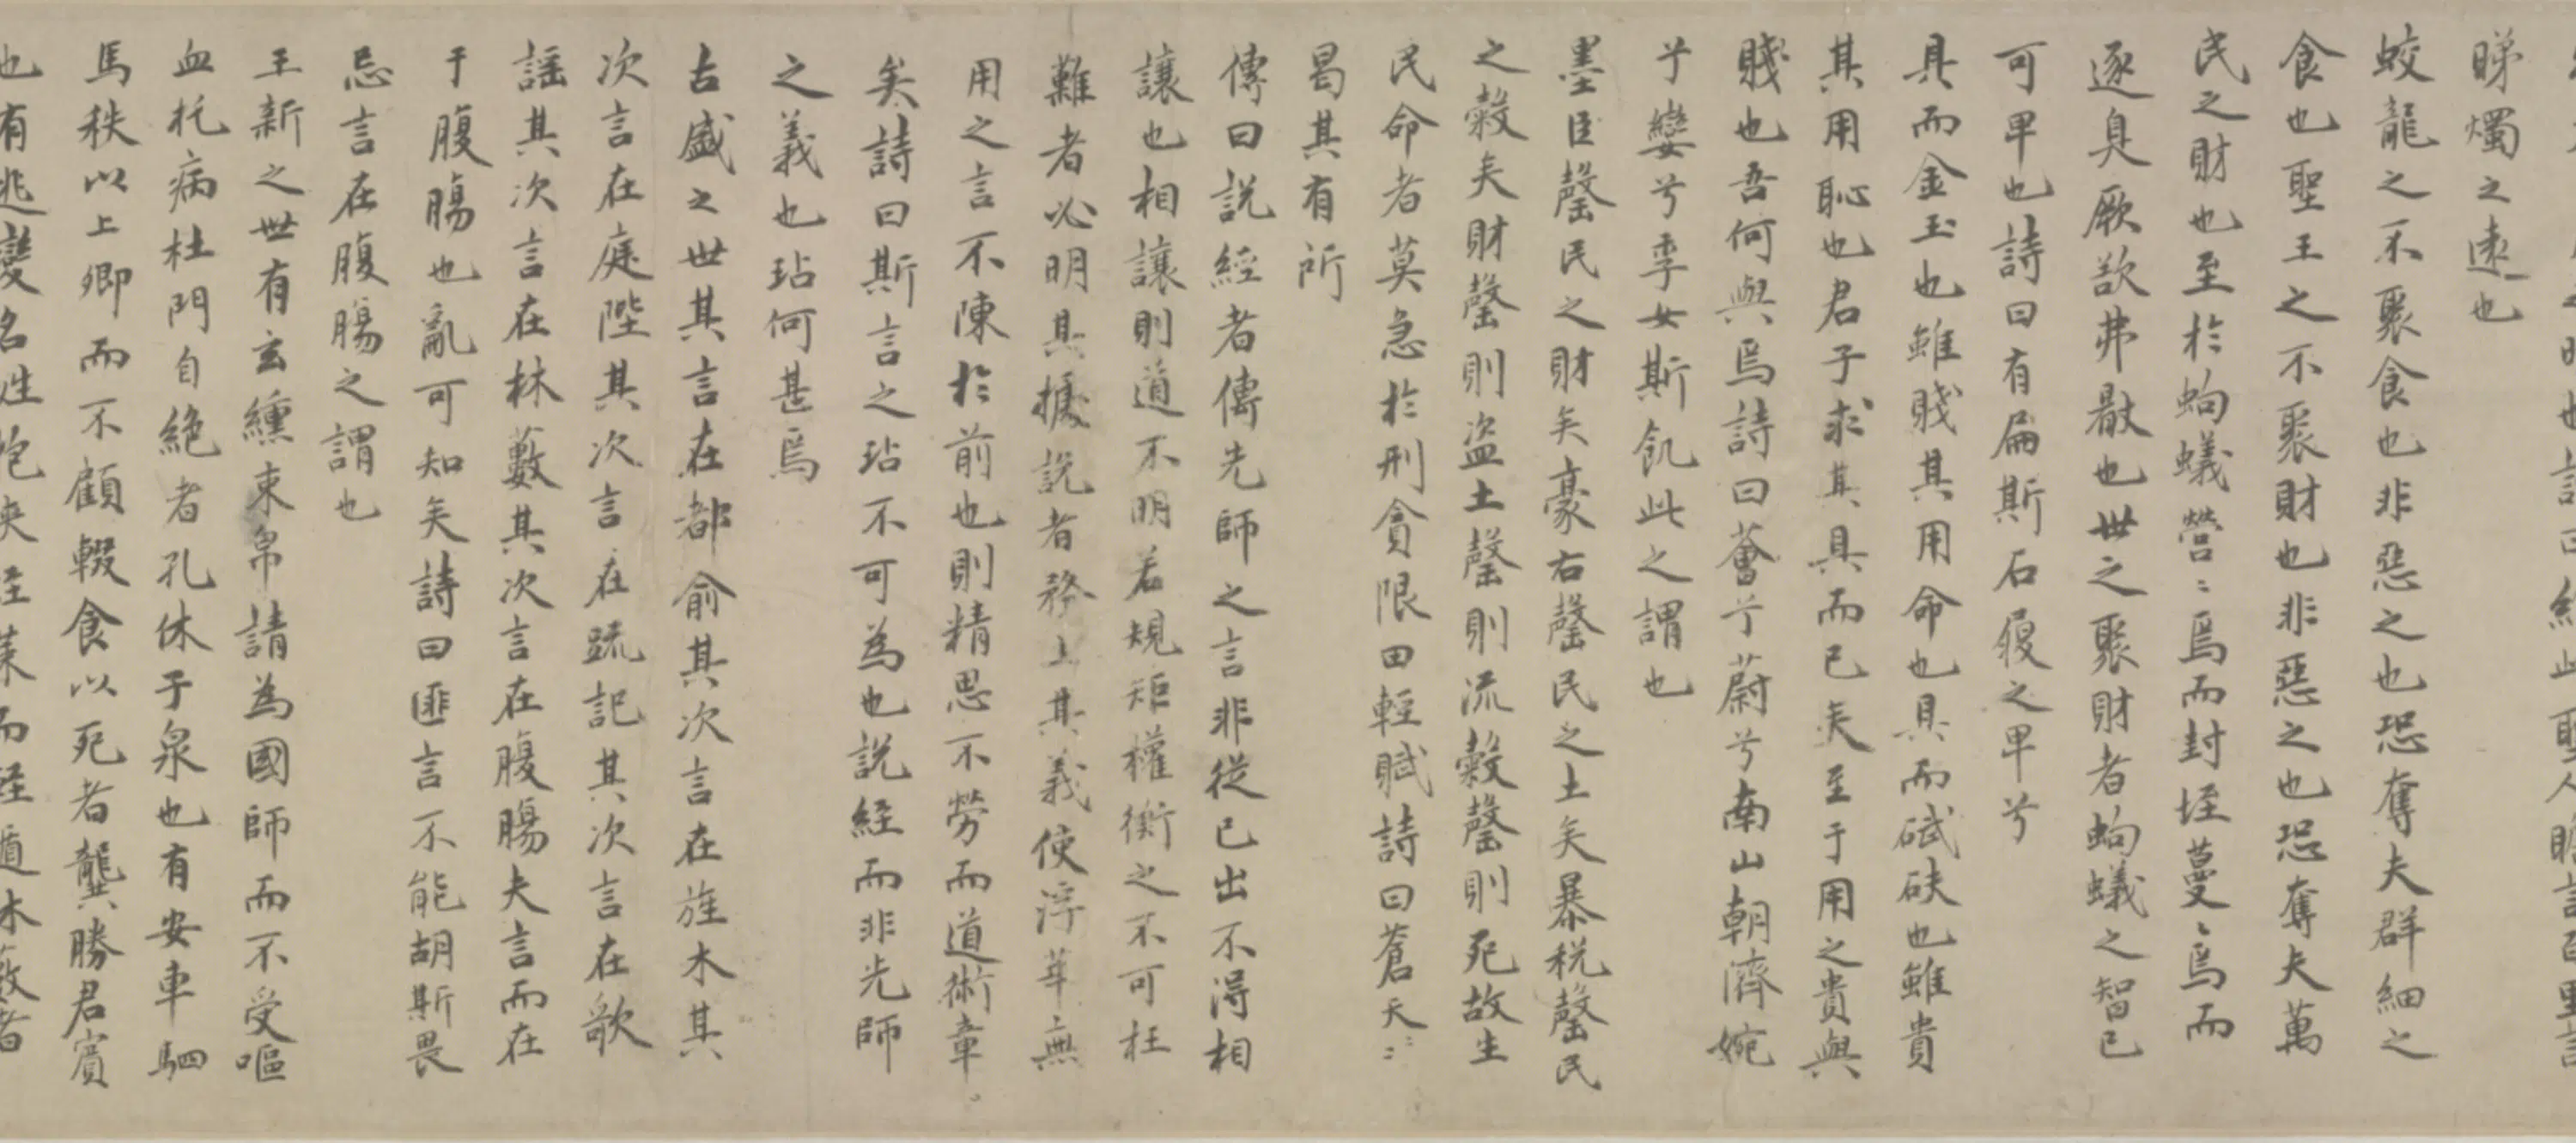 睇燭之遠也
蛟龍之不聚食也非惡之也恐奪夫群細之
食也聖王之不聚財也非惡之也恐奪夫萬
民之財也至於蚼蟻營〻焉而封垤蔓〻焉而
逐臭厥欲弗厭也世之聚財者蚼蟻之智已
可卑也詩曰有扁斯石履之卑兮
具而金玉也雖賤其用命也具而碔砆也雖貴
其用恥也君子求其具而已矣至于用之貴與
賤也吾何與焉詩曰薈兮蔚兮南山朝隮婉
兮孌兮季女斯飢此之謂也
墨臣罄民之財矣豪右罄民之土矣暴税罄民
之穀矣財罄則盗土罄則流穀罄則死故生
民命者莫急於刑貪限田輕賦詩曰蒼天〻〻
曷其有所
傳曰説經者傳先師之言非從己出不得相
讓也相讓則道不明若規矩權衡之不可枉
難者必明其據説者務上其義使浮華無
用之言不陳於前也則精思不勞而道術章
矣詩曰斯言之玷不可為也説經而非先師
之義也玷何甚焉
古盛之世其言在都俞其次言在旌木其
次言在庭陛其次言在疏記其次言在歌
謡其次言在林藪其次言在腹腸夫言而在
于腹腸也亂可知矣詩曰匪言不能胡斯畏
忌言在腹腸之謂也
王新之世有玄纁束帛請為國師而不受嘔
血托病杜門自絶者孔休于泉也有安車駟
馬秩以上卿而不顧輟食以死者龔勝君賓
也有逃變名姓抱